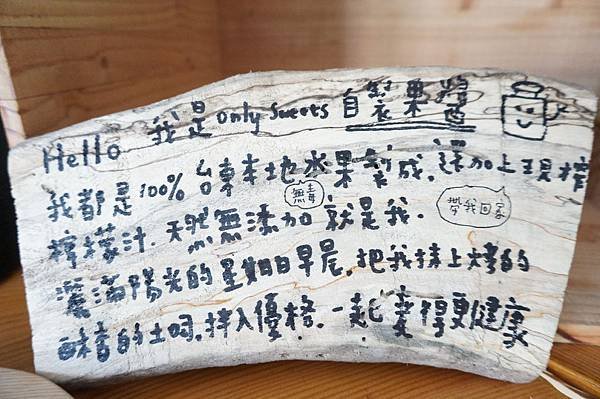 Hello 我是 only sweets 自製果醬
我都是100% 台東本地水果製成，還加上現榨
無毒
檸檬汁．天然無添加就是我．
帶我回家
灑滿陽光的星期日早晨，把我抹上烤的
酥香的土司，拌入優格．一起變得更健康